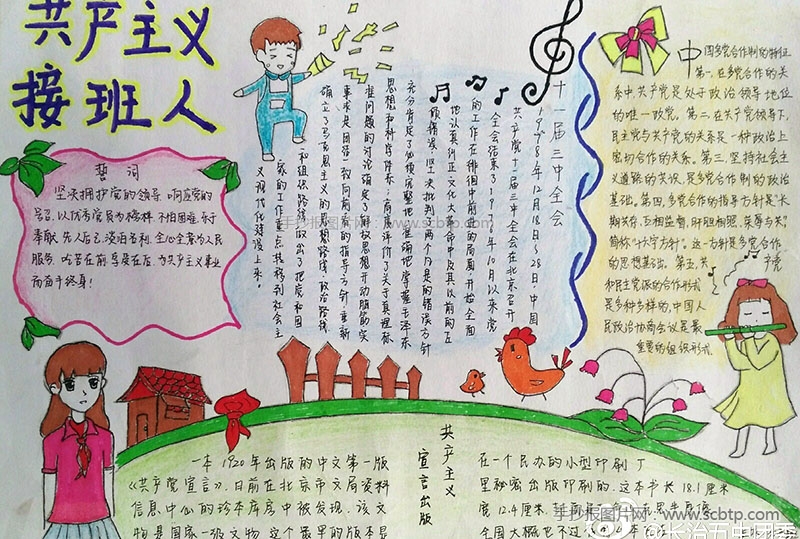 共产主义
接班人
誓词
坚决拥护党的领导 响应党的
号召,以优秀党员为榜样 不怕困难,乐于
奉献 先人后己 淡泊名利 全心全意为人民
服务 吃苦在前 享受在后 为共产主义事业
而奋斗终身!
十一届三中全会
1978年12月18日~28日,中国
共产党十一届三中全会在北京召开
全会结束了1976年10月以来党
的工作在徘徊中前进的局面,开始全面
地认真纠正文化大革命中及其以前的左
倾错误 坚决批判了两个凡是的错误方针
充分肯定了必须完整地准确地掌握毛泽东
思想和科学体系,高度评价了关于真理标
准问题的讨论 确定了解放思想 开动脑筋 实
事求是 团结一致向前看的指导方针,重新
确立了马克思主义的思想路线,政治路线
和组织路线 做出了把党和国
家的工作重点转移到社会主
义现代化建设上来。
中国多党合作制的特征
第一,在多党合作的关
系中,共产党是处于政治领导地位
的唯一政党。第二,在共产党领导下,
民主党与共产党的关系是一种政治上
密切合作的关系。第三,坚持社会主
义道路的共识,是多党合作制的政治
基础。第四,多党合作的指导方针是"长
期共存,互相监督,肝胆相照,荣辱与共"
简称"十六字方针"。这一方针是多党合作
的思想基础。第五,共产党
和民主党派的合作形式
是多种多样的,中国人
民政治协商会议是最
重要的组织形式
共产主义
宣言出版
一本1920年出版的中文第一版
《共产党宣言》,日前在北京市文局资料
信息中心的珍本库房中被发现.该文
物是国家一级文物 这个最早的版本是
在一个民办的小型印刷厂
里秘密出版印刷的,这本书长18.1厘米
度12.4厘米
全国大概也不过
手抄报图片网 - www.scbtp.com
手抄报图片网
www.scbtp.com
@长治五中团委